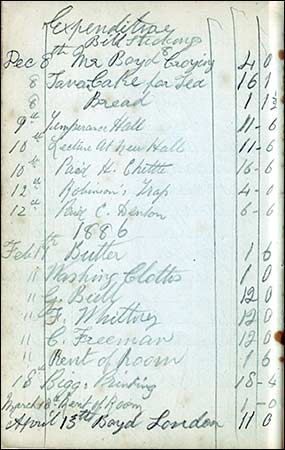 Expenditrae
Bill Sticking &
Dec 8th Mr Boyd Croying 4 0
8 Tava Cake for Tea 16 1
8 Bread 1 1½
9th Temperance Hall 11-6
10th Lecture at New Hall 11-6
10th Paid H. Chitte 16-6
12th Robinson's Trap 4-0
12th Paid C. Denton 6-6
1886
Feb 11th Butter 1 6
11 Washing Cloths 1 0
11 G. Bull 12 0
11 F. Whittney 12 0
11 C. Freeman 12 0
11 Rent of Room 1 6
18th Biggs Printing 18-4
March 18th Rent of Room 1-0
April 13th Boyd London 11 0